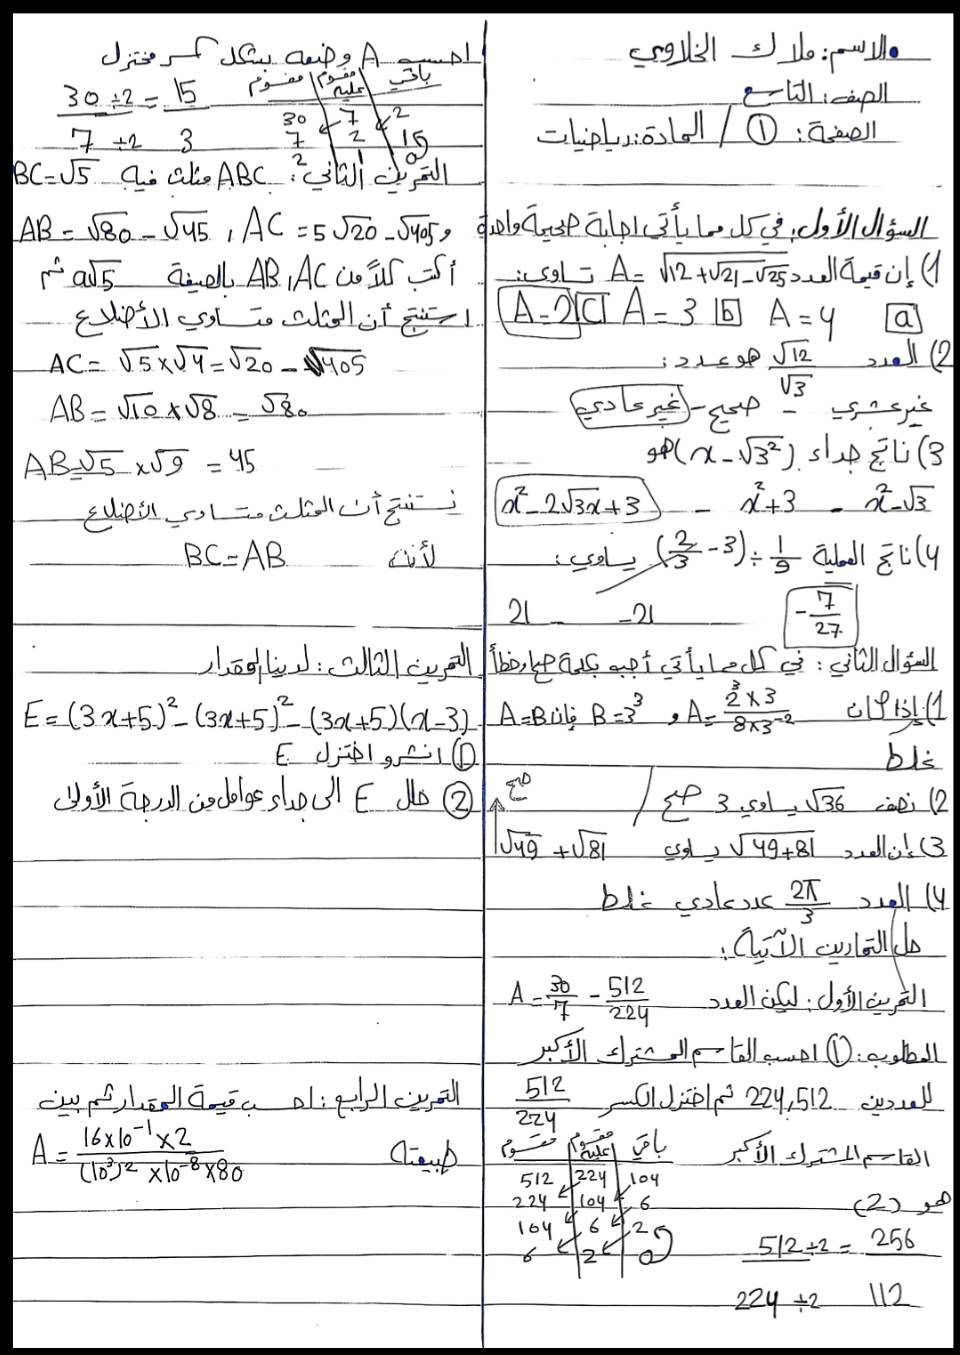 الاسم: ملاك الخلاوي
الصف: التاسع
الصفحة: ① / المادة: رياضيات
السؤال الأول: في كل مما يأتي اجابة صحيحة واحدة
1) إن قيمة العدد A = √12+√21-√25 تساوي:
a A=4 b A=3 C A=2
2) العدد √12/√3 هو عدد:
غير عشري - صحيح - غير عادي
3) ناتج جداء (x-√3²) هو
x²-√3 - x²+3 - x²-2√3x+3
4) ناتج العملية (2/3 - 3) ÷ 1/9 يساوي:
-7/27 -21 - 21
السؤال الثاني: في كل مما يأتي أجب بكلمة صح أو خطأ
1) إذا كان A = 2³×3/8×3⁻² و B=3³ فإن A=B
غلط
2) نصف √36 يساوي 3 صح /
صح
3) إن العدد √49+81 يساوي √49+√81
4) العدد 2π/3 عدد عادي غلط
حل التمارين الآتية:
التمرين الأول: ليكن العدد A = 30/7 - 512/224
المطلوب: ① احسب القاسم المشترك الأكبر
للعددين 224,512 ثم اختزل الكسر 512/224
القاسم المشترك الأكبر
هو (2)
مقسوم مقسوم عليه باقي
512 224 104
224 104 6
104 6 2
6 2 0
512÷2 = 256
224÷2 112
احسب A وضعه بشكل كسر مختزل
مقسوم مقسوم عليه باقي
30 7 2
7 2 1
2 1 0
30÷2 = 15
7÷2 3
التمرين الثاني: ABC مثلث فيه BC=√5
و AC=5√20-√405 , AB=√80-√45
أكتب كلاً من AB, AC بالصيغة a√5 ثم
استنتج أن المثلث متساوي الأضلاع
AC= √5×√4=√20-√405
AB= √10×√8=√80
AB=√5×√9=45
نستنتج أن المثلث متساوي الأضلاع
لأن BC=AB
التمرين الثالث: لدينا المقدار
E=(3x+5)²-(3x+5)²-(3x+5)(x-3)
① انشر و اختزل E
② حلل E الى جداء عوامل من الدرجة الأولى
التمرين الرابع: احسب قيمة المقدار ثم بين
طبيعته A = 16×10⁻¹×2/(10³)²×10⁻⁸×80